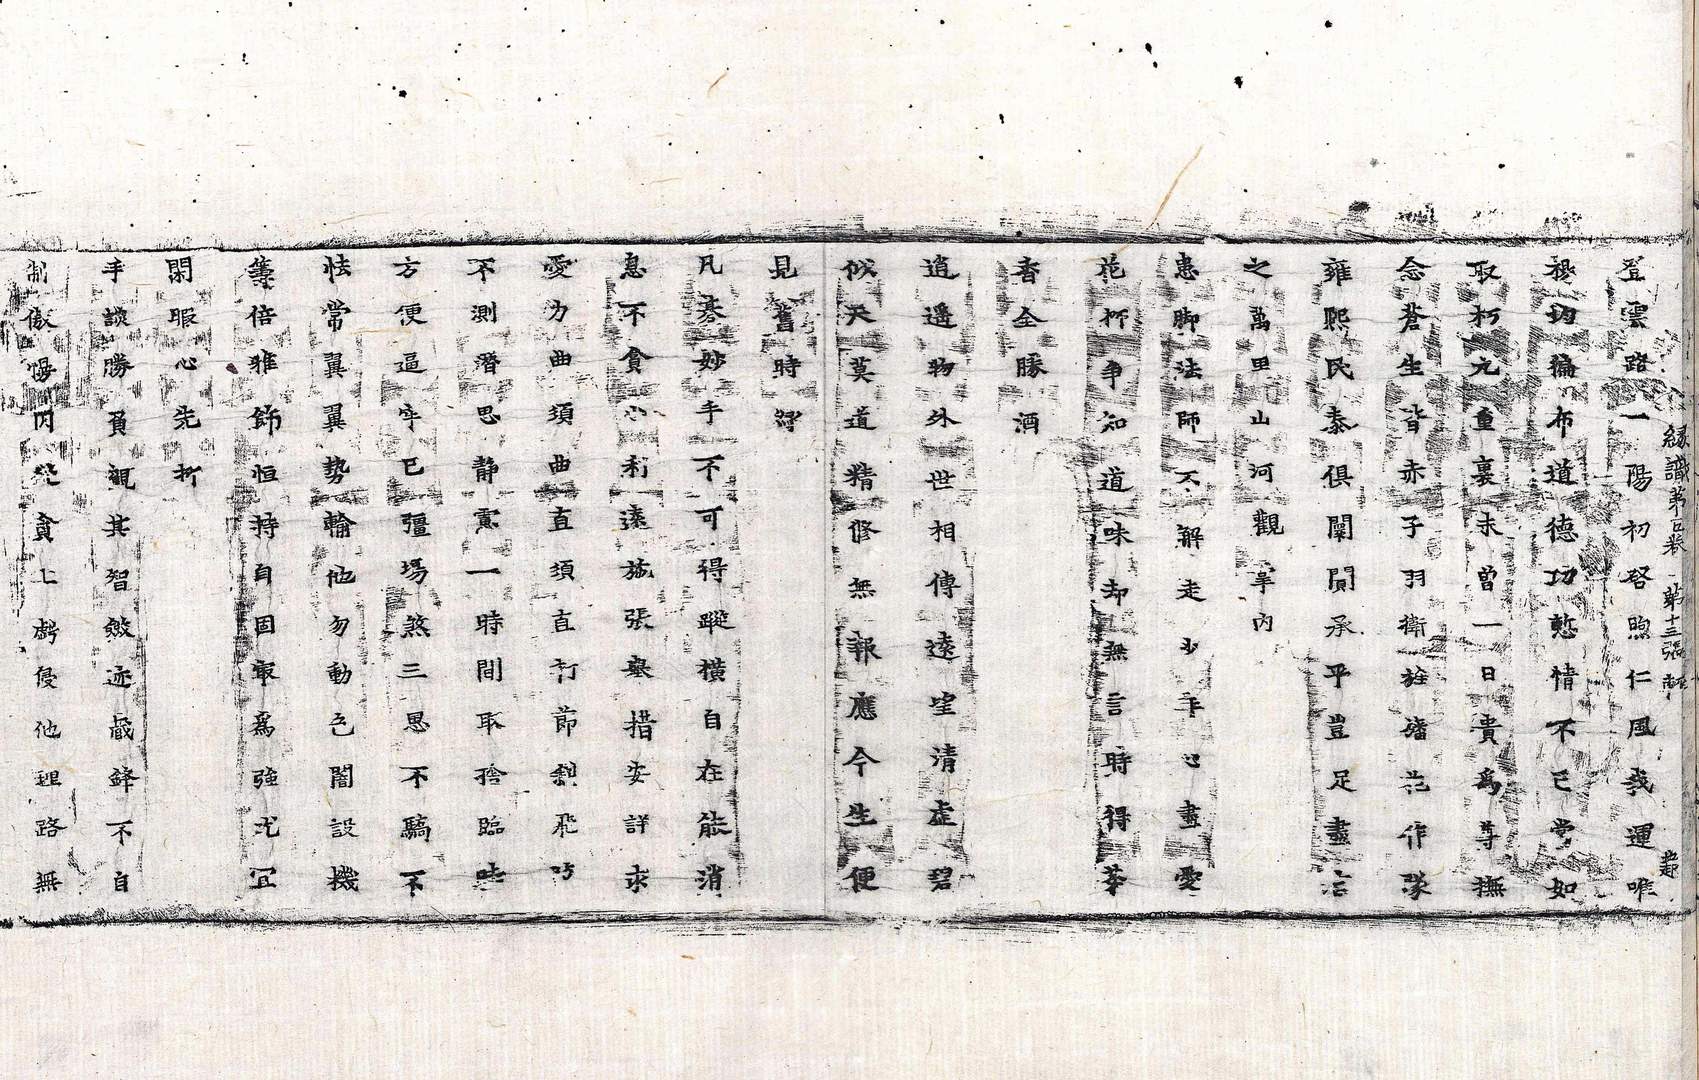 緣識第五卷 第十三張
登雲路一陽初啓煦仁風我運唯
穆均徧布道德功慙情不已常如
取朽元重裏未曾一日貴爲尊撫
念蒼生皆赤子羽衛旌旛花作隊
雍熙民泰俱闐闐承平豈足盡
之萬里山河觀掌內
惠脚法師不解走少年心盡愛
花柳爭知道味却無言時得莘
香全勝酒
逍遙物外世相傳遠望清虛碧
似天莫道精修無報應今生便
見舊時
凡棊妙手不可得蹤橫自在能消
息不貪小利遠施張舉措安詳求
愛力曲須曲直須直打節斜飛
不測潛思靜慮一時間取捨臨時
方便逼牢已彊場煞三思不驕不
怯常翼翼勢輸他勿動色闇設機
籌倍雅飾恒持自固最爲強尤宜
閑暇心先抑
手談勝負觀其智斂迹藏鋒不自
制傲慢閃 貪七 侵他理路無